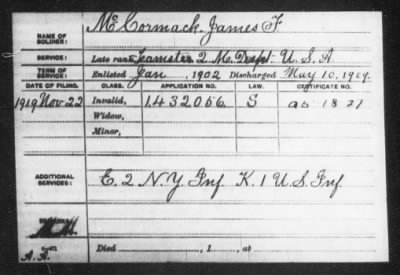 NAME OF SOLDIER: McCormack, James F
SERVICE: Late rank, Teamster 2 M. Dept. U.S.A
TERM OF SERVICE: Enlisted Jan , 1902 Discharged May 10, 1909.
DATE OF FILING. CLASS. APPLICATION NO. LAW. CERTIFICATE NO.
1919 Nov 22 Invalid, 1432056 S
Widow,
Minor,
ADDITIONAL SERVICES: E. 2 N.Y. Inf K. 1 U.S. Inf
Died , 1 , at